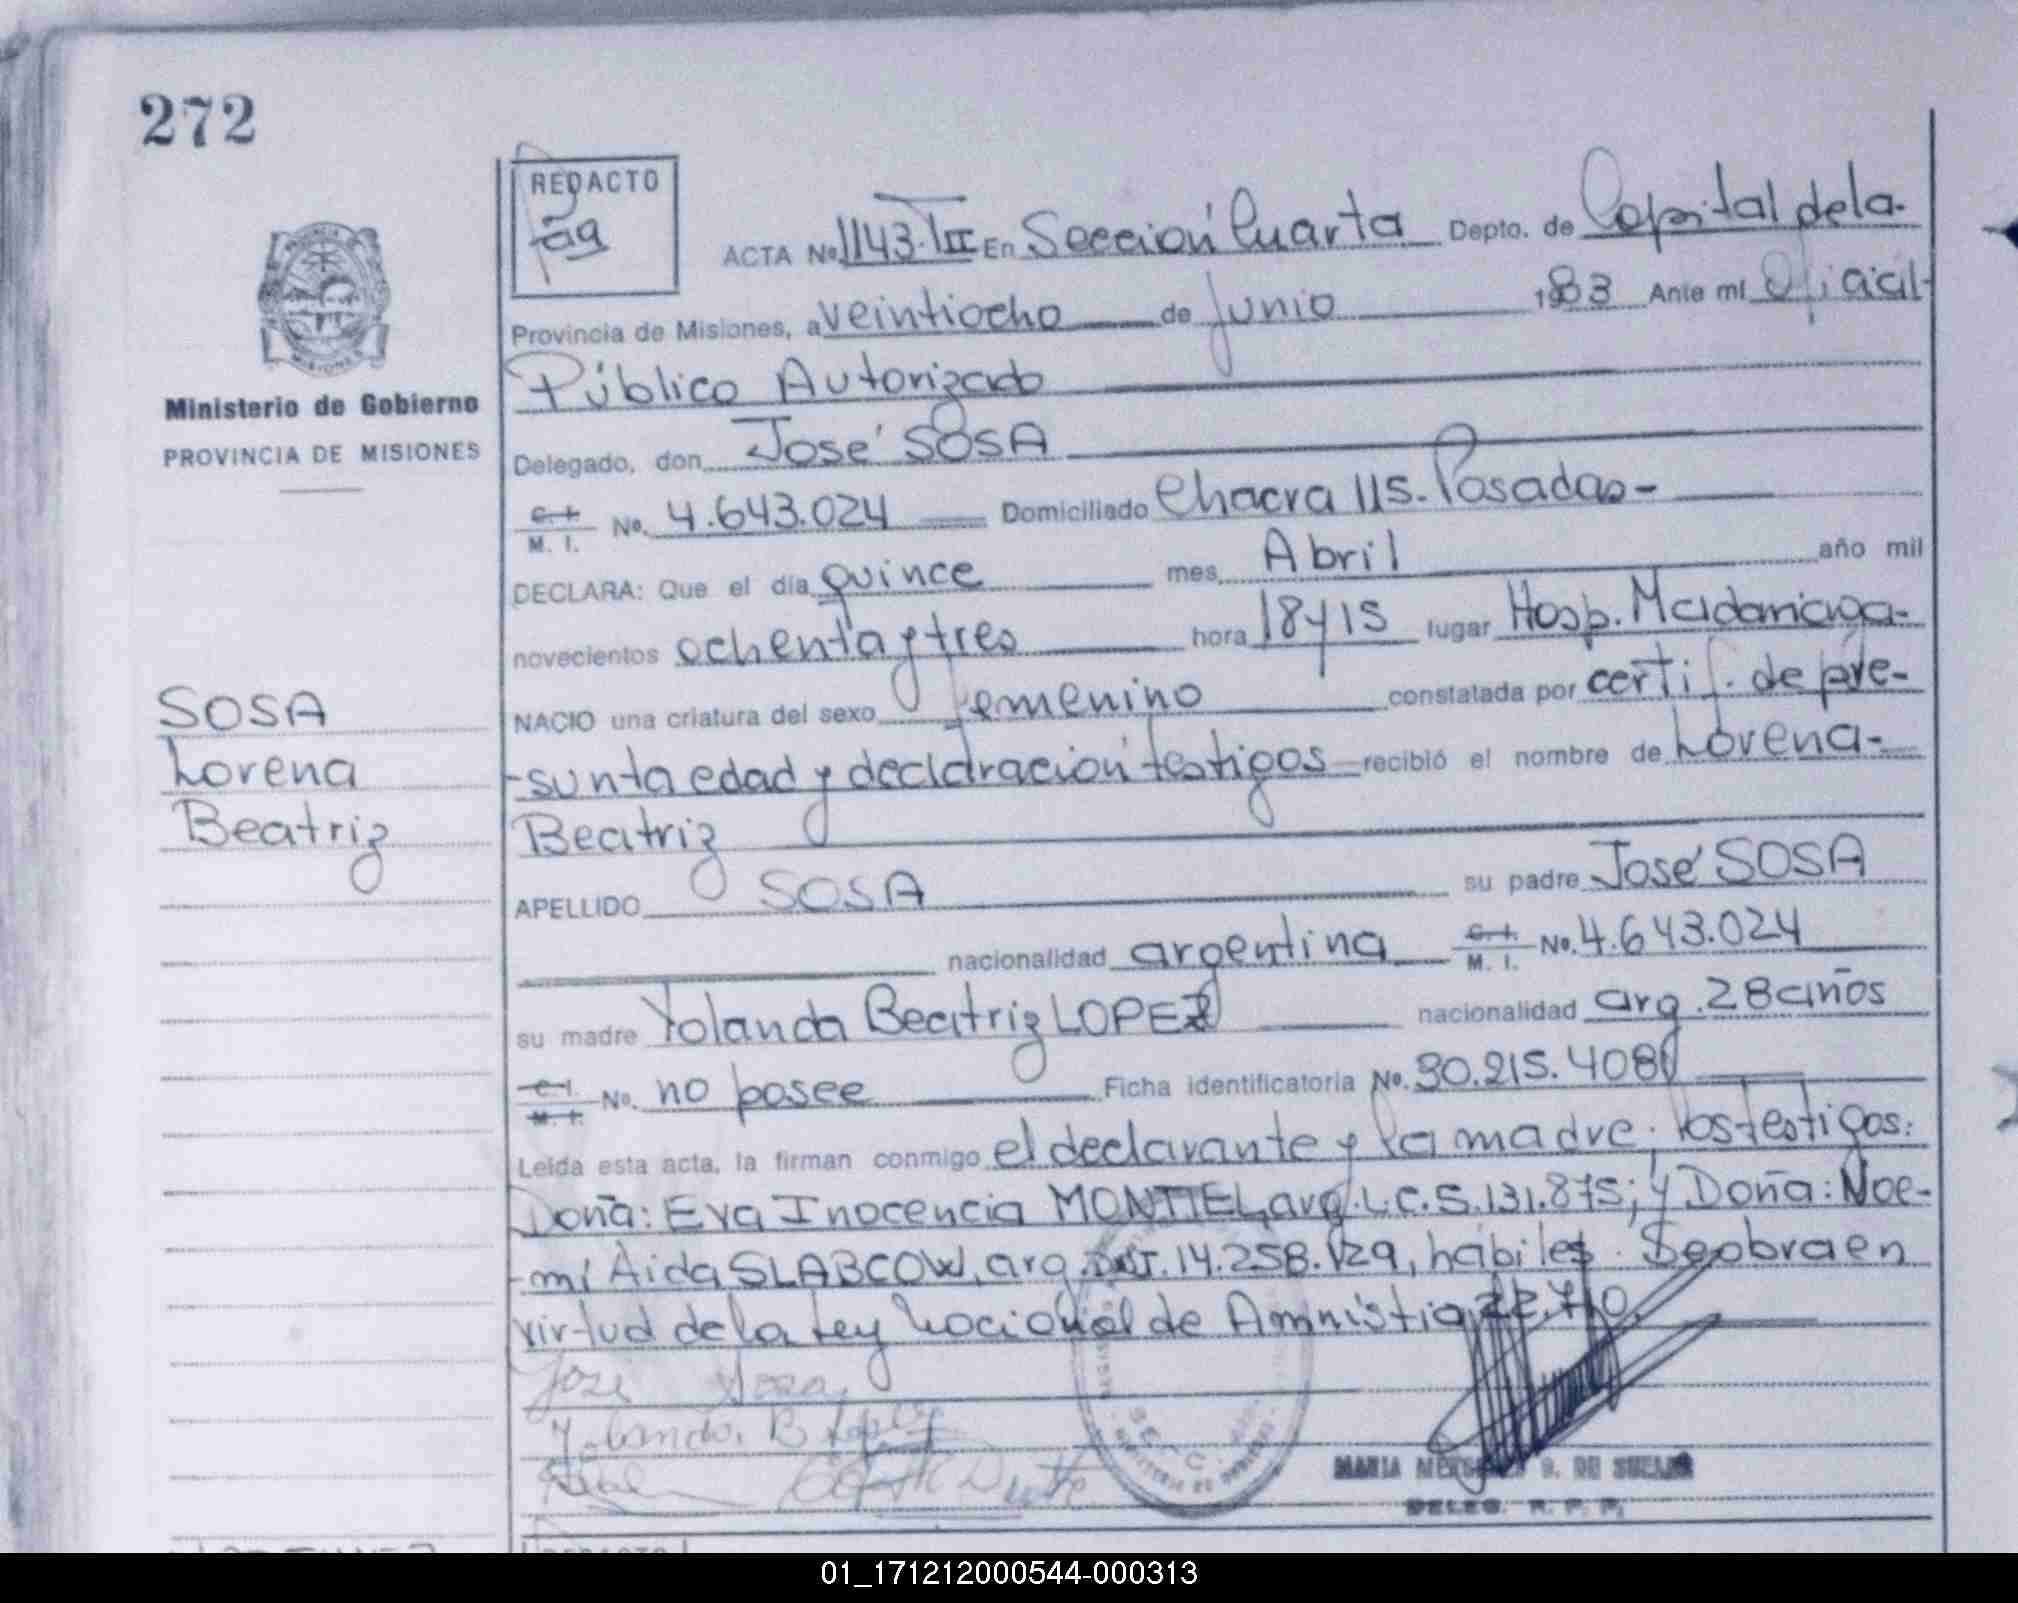 272
REDACTO
ACTA No 1143.TII En Sección Cuarta Depto. de Capital de la.
Provincia de Misiones, a veintiocho de Junio 1983 Ante mí Oficial
Público Autorizado
Ministerio de Gobierno
PROVINCIA DE MISIONES
Delegado, don José SOSA
C. I. M. I. No. 4.643.024 Domiciliado Chacra 115. Posadas-
DECLARA: Que el día quince mes Abril año mil
novecientos ochenta y tres hora 18 y 15 lugar Hosp. Madariaga-
NACIO una criatura del sexo femenino constatada por certif. de pre-
-sunta edad y declaración testigos recibió el nombre de Lorena-
Beatriz
SOSA
Lorena
Beatriz
APELLIDO SOSA su padre José SOSA
nacionalidad argentina C. I. M. I. No. 4.643.024
su madre Yolanda Beatriz LOPEZ nacionalidad arg. 28 años
C. I. M. I. No. no posee Ficha identificatoria No. 30.215.408
Leída esta acta, la firman conmigo el declarante y la madre. los testigos:
Doña: Eva Inocencia MONTIEL, arg. L.C. 5.131.875; y Doña: Noe-
-mí Aida SLABCOW, arg. 14.258.129, hábiles. Se obra en
virtud de la Ley Nacional de Amnistia 22.710.
José Sosa
Yolanda B López
MARIA S. DE
DELEG. R. P. P.
01_171212000544-000313